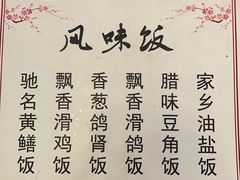 风味饭
驰名黄鳝饭
飘香滑鸡饭
香葱鸽肾饭
飘香滑鸽饭
腊味豆角饭
家乡油盐饭